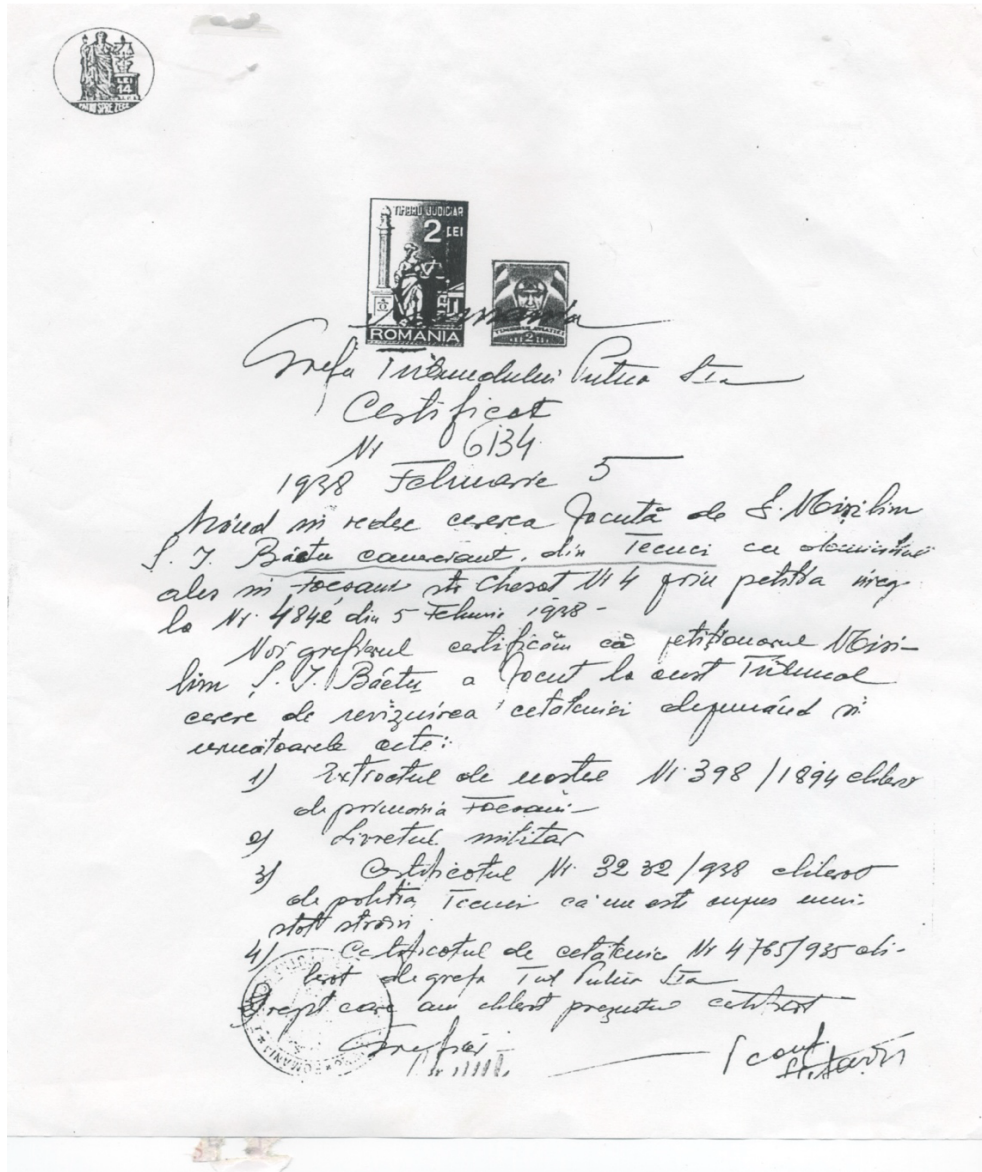 LEI
14
TIMBRU JUDICIAR
2 LEI
ROMANIA
TIMBRUL AVIATIEI
2
Romania
Grefa Tribunalului Putna S I a
Certificat
Nr 6134
1938 Februarie 5
Având în vedere cererea făcută de
S. I. Băctu comerciant din Tecuci cu domiciliul
ales în Focsani str Nr 4 prin petitia inreg
la Nr. 4842 din 5 Februarie 1938 -
Noi grefierul certificăm că petiționarul Mizi-
lim S. I. Băctu a făcut la acest Tribunal
cerere de revizuirea cetăteniei depunând și
urmatoarele acte:
1) Extractul de nastere Nr 398/1894 eliberat
de primaria Focsani -
2) Livretul militar
3) Certificatul Nr. 3232/938 eliberat
de politia Tecuci ca nu este supus unui
stat străin
4) Certificatul de cetătenie Nr 4765/935 eli-
berat de grefa Trib Putna S I a
Drept care am eliberat prezentul certificat
Grefier